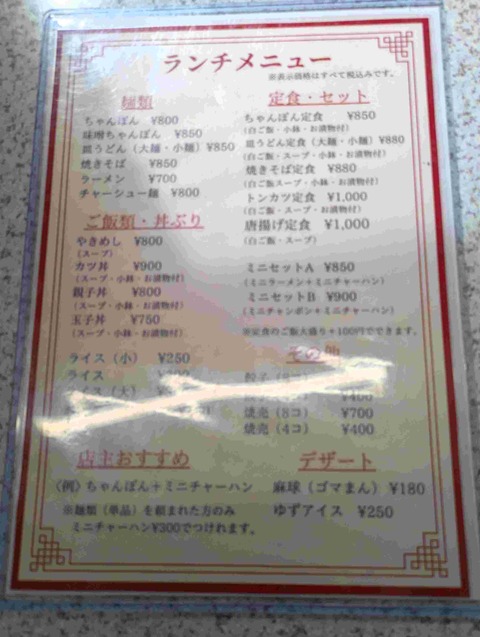 ランチメニュー
※表示価格はすべて税込みです。
麺類
ちゃんぽん ¥800
味噌ちゃんぽん ¥850
皿うどん（大麺・小麺）¥850
焼きそば ¥850
ラーメン ¥700
チャーシュー麺 ¥800
ご飯類・丼ぶり
やきめし ¥800
（スープ）
カツ丼 ¥900
（スープ・小鉢・お漬物付）
親子丼 ¥800
（スープ・小鉢・お漬物付）
玉子丼 ¥750
（スープ・小鉢・お漬物付）
ライス（小） ¥250
ライス
（大）
店主おすすめ
〈例〉ちゃんぽん＋ミニチャーハン
※麺類（単品）を頼まれた方のみ
ミニチャーハン¥300でつけれます。
定食・セット
ちゃんぽん定食 ¥850
（白ご飯・小鉢・お漬物付）
皿うどん定食（大麺・小麺）¥880
（白ご飯・スープ・小鉢・お漬物付）
焼きそば定食 ¥880
（白ご飯スープ・小鉢・お漬物付）
トンカツ定食 ¥1,000
（白ご飯・スープ・小鉢・お漬物付）
唐揚げ定食 ¥1,000
（白ご飯・スープ）
ミニセットA ¥850
（ミニラーメン＋ミニチャーハン）
ミニセットB ¥900
（ミニチャンポン＋ミニチャーハン）
※定食のご飯大盛り＋100円でできます。
その他
餃子
¥400
焼売（8コ） ¥700
焼売（4コ） ¥400
デザート
麻球（ゴマまん） ¥180
ゆずアイス ¥250